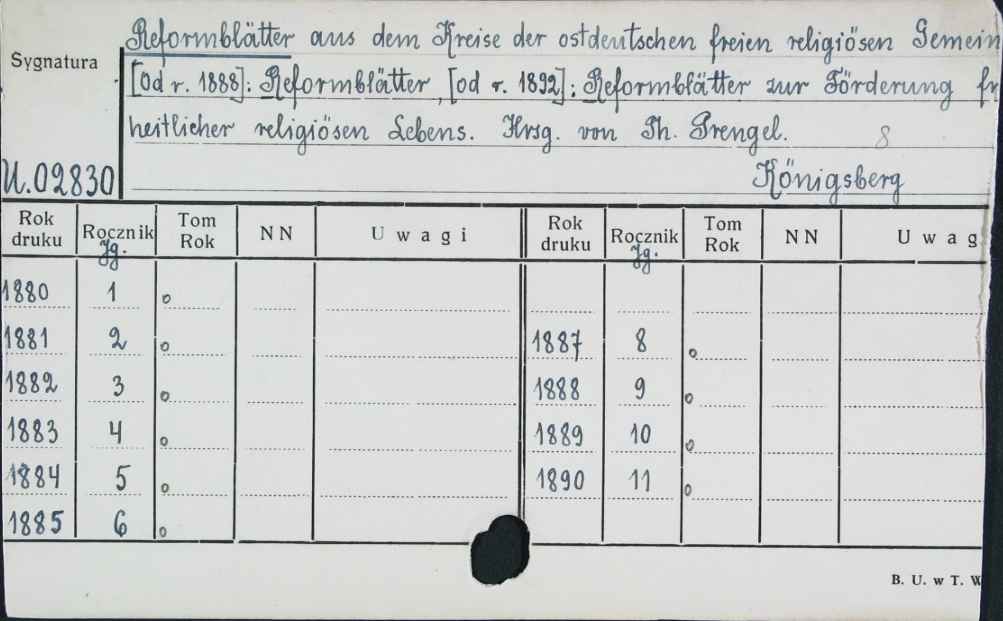 Reformblätter aus dem Kreise der ostdeutschen freien religiösen Gemein
Sygnatura
[Od r. 1888]: Reformblätter, [od r. 1892]: Reformblätter zur Förderung fr
heitlicher religiösen Lebens. Hrsg. von Th. Prengel. 8
U.02830 Königsberg
Rok druku Rocznik Jg. Tom Rok NN Uwagi Rok druku Rocznik Jg. Tom Rok NN Uwag
1880 1 o
1881 2 o 1887 8 o
1882 3 o 1888 9 o
1883 4 o 1889 10 o
1884 5 o 1890 11 o
1885 6 o
B. U. w T. W